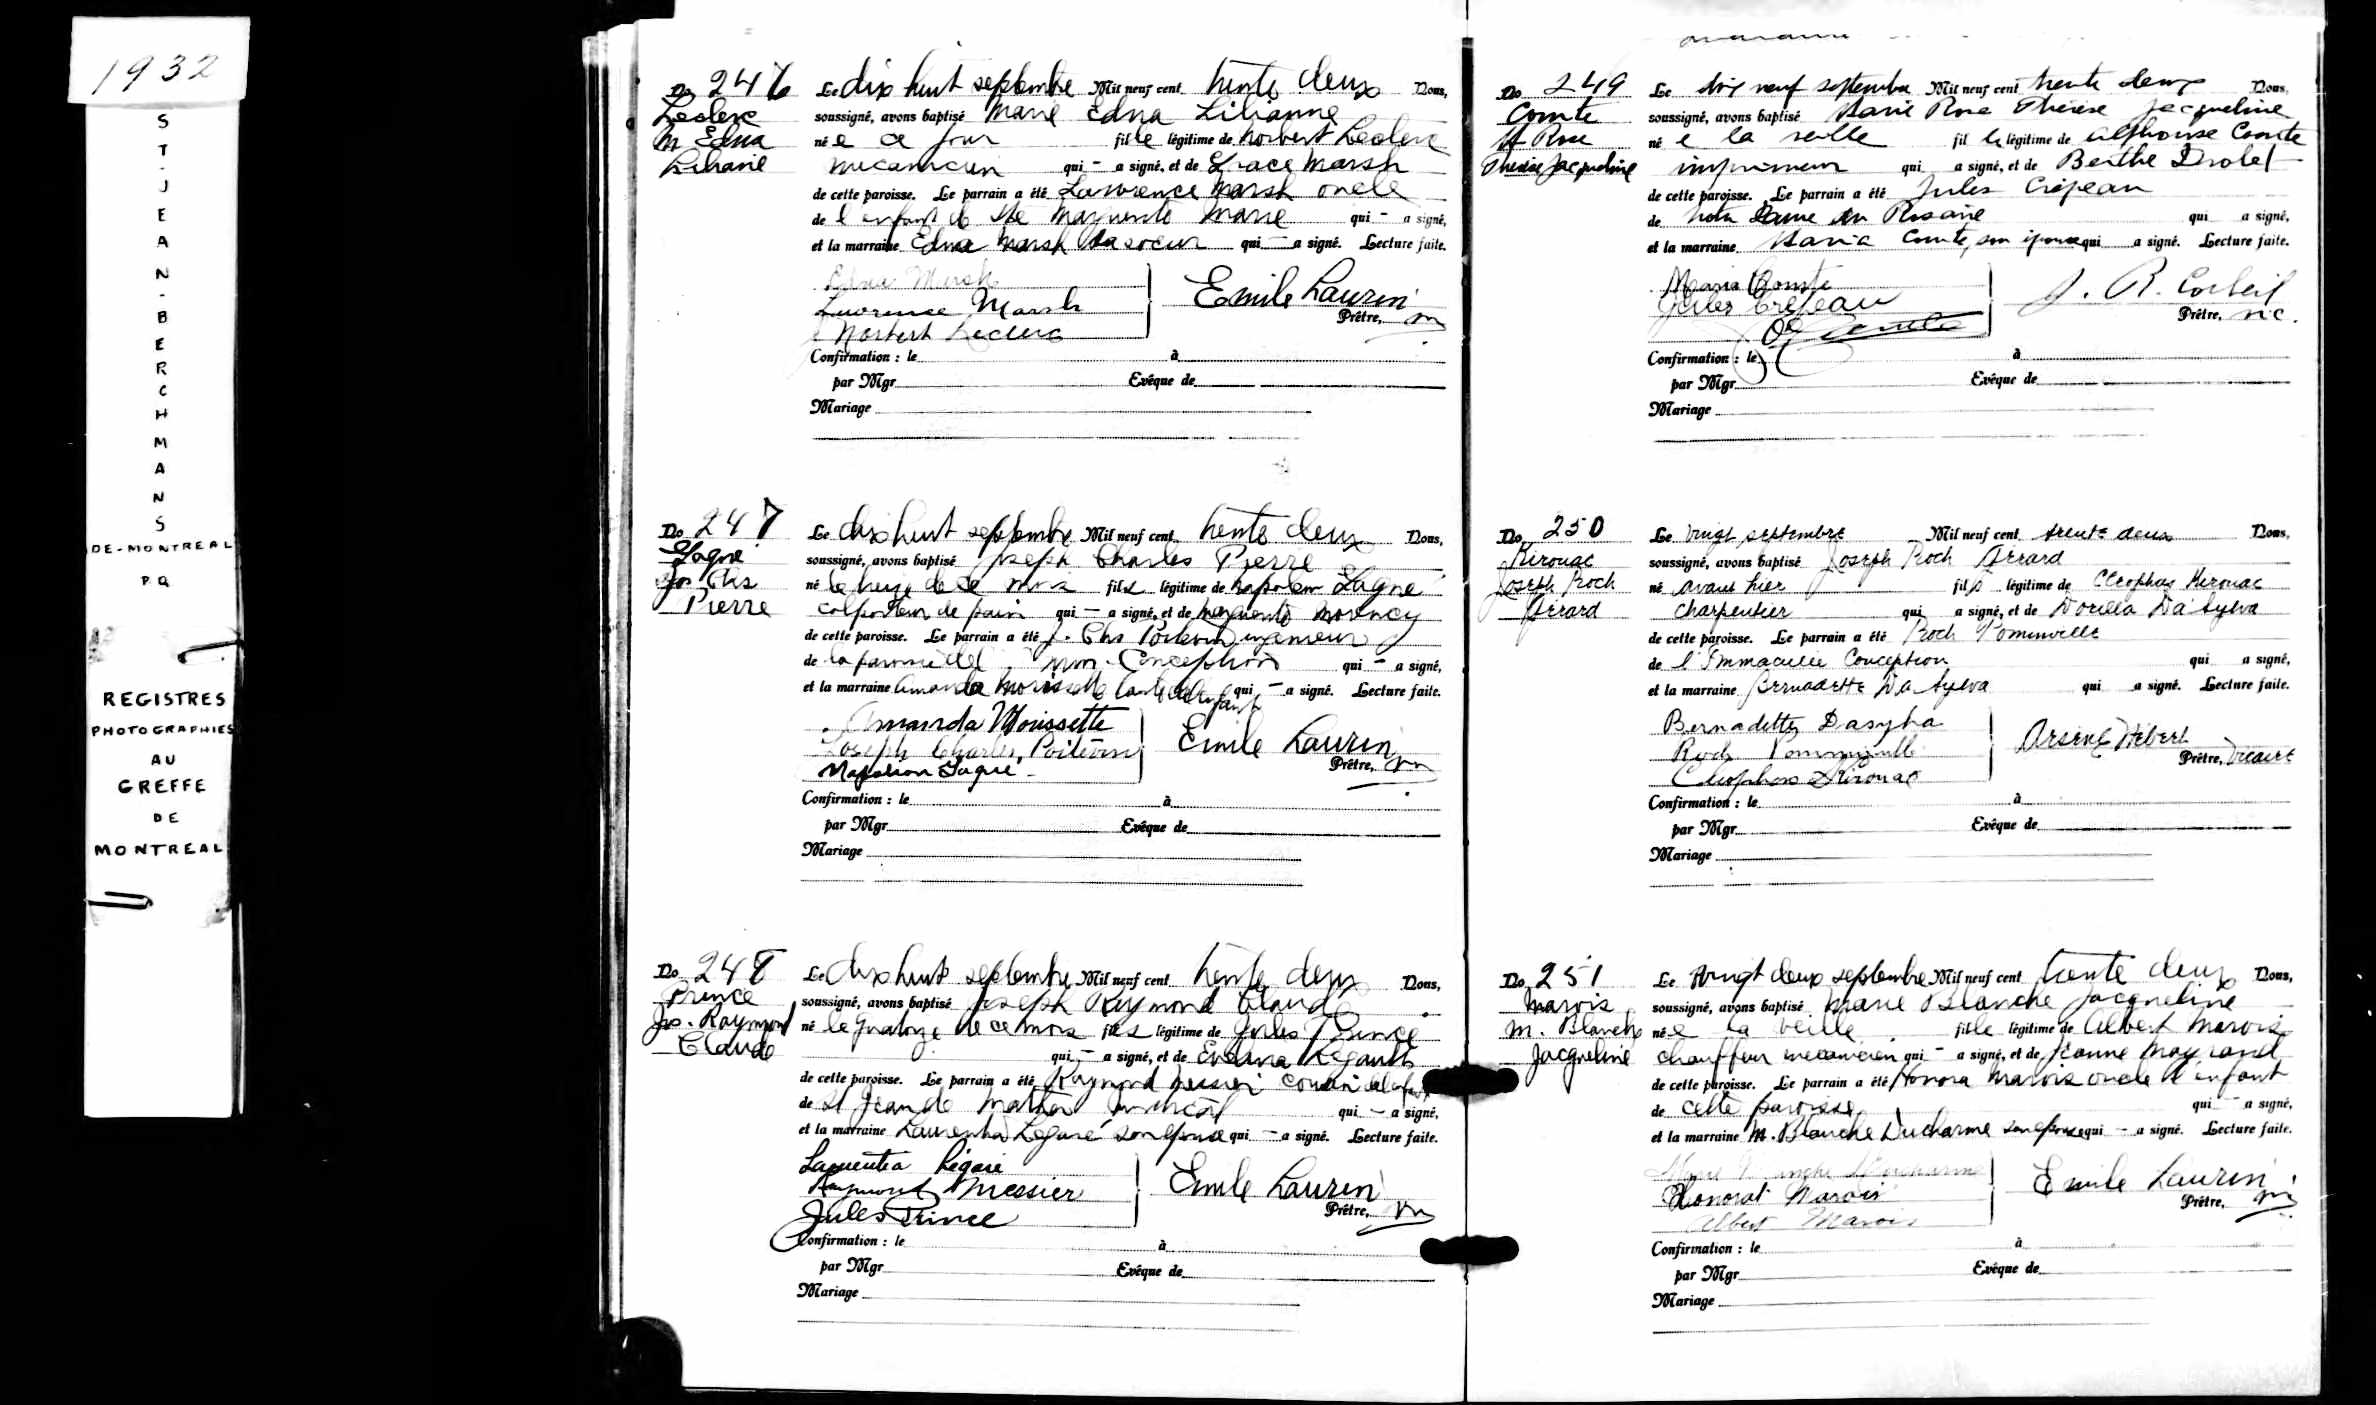 1932
ST-JEAN-BERCHMANS
DE-MONTREAL
P.Q
REGISTRES
PHOTOGRAPHIES
AU
GREFFE
DE
MONTREAL
No 246 Le dix huit septembre Mil neuf cent trente deux Nous,
Leclerc soussigné, avons baptisé Marie Edna Lilianne
M Edna né e ce jour fille légitime de Norbert Leclerc
Liliane mécanicien qui – a signé, et de Grace Marsh
de cette paroisse. Le parrain a été Lawrence Marsh oncle
de l'enfant de Ste Marguerite Marie qui – a signé,
et la marraine Edna Marsh sa soeur qui – a signé. Lecture faite.
Edna Marsh
Lawrence Marsh Emile Laurin
Norbert Leclerc Prêtre,
Confirmation : le à
par Mgr Evêque de
Mariage
No 247 Le dix huit septembre Mil neuf cent trente deux Nous,
Gagné soussigné, avons baptisé Joseph Charles Pierre
Jos. Chs né le treize de ce mois fils légitime de Napoléon Gagné
Pierre colporteur de pain qui – a signé, et de Marguerite Morency
de cette paroisse. Le parrain a été J. Chs Poitevin ingénieur
de la paroisse de l'Imm. Conception qui – a signé,
et la marraine Amanda Morissette tante de l'enfant qui – a signé. Lecture faite.
Amanda Morissette
Joseph Charles Poitevin Emile Laurin
Napoléon Gagné Prêtre,
Confirmation : le à
par Mgr Evêque de
Mariage
No 248 Le dix huit septembre Mil neuf cent trente deux Nous,
Prince soussigné, avons baptisé Joseph Raymond Claude
Jos. Raymond né le quatorze de ce mois fils légitime de Jules Prince
Claude qui – a signé, et de Evelina Legault
de cette paroisse. Le parrain a été Raymond Messier cousin
de St Jean de Matha qui – a signé,
et la marraine Laurentia Légaré son épouse qui – a signé. Lecture faite.
Laurentia Légaré
Raymond Messier Emile Laurin
Jules Prince Prêtre,
Confirmation : le à
par Mgr Evêque de
Mariage
No 249 Le dix neuf septembre Mil neuf cent trente deux Nous,
Comte soussigné, avons baptisé Marie Rose Thérèse Jacqueline
M Rose né e la veille fille légitime de Alphonse Comte
Thérèse Jacqueline imprimeur qui a signé, et de Berthe Drolet
de cette paroisse. Le parrain a été Jules Crépeau
de Notre Dame du Rosaire qui a signé,
et la marraine Maria Comte, son épouse qui a signé. Lecture faite.
Maria Comte
Jules Crépeau J. R. Corbeil
Prêtre, vic.
Confirmation : le à
par Mgr Evêque de
Mariage
No 250 Le vingt septembre Mil neuf cent trente deux Nous,
Kirouac soussigné, avons baptisé Joseph Roch Gérard
Joseph Roch né avant hier fils légitime de Cléophas Kirouac
Gérard charpentier qui a signé, et de Dorilla Da Sylva
de cette paroisse. Le parrain a été Roch Pominville
de l'Immaculée Conception qui a signé,
et la marraine Bernadette Da Sylva qui a signé. Lecture faite.
Bernadette Dasylva
Roch Pominville Arsène Hébert
Cléophas Kirouac Prêtre, vicaire
Confirmation : le à
par Mgr Evêque de
Mariage
No 251 Le vingt deux septembre Mil neuf cent trente deux Nous,
Marois soussigné, avons baptisé Marie Blanche Jacqueline
M. Blanche né e la veille fille légitime de Albert Marois
Jacqueline chauffeur mécanicien qui – a signé, et de Jeanne Mayrand
de cette paroisse. Le parrain a été Honora Marois oncle de enfant
de cette paroisse qui – a signé,
et la marraine M. Blanche Ducharme son épouse qui – a signé. Lecture faite.
Marie Blanche Ducharme
Honorat Marois Emile Laurin
Albert Marois Prêtre,
Confirmation : le à
par Mgr Evêque de
Mariage